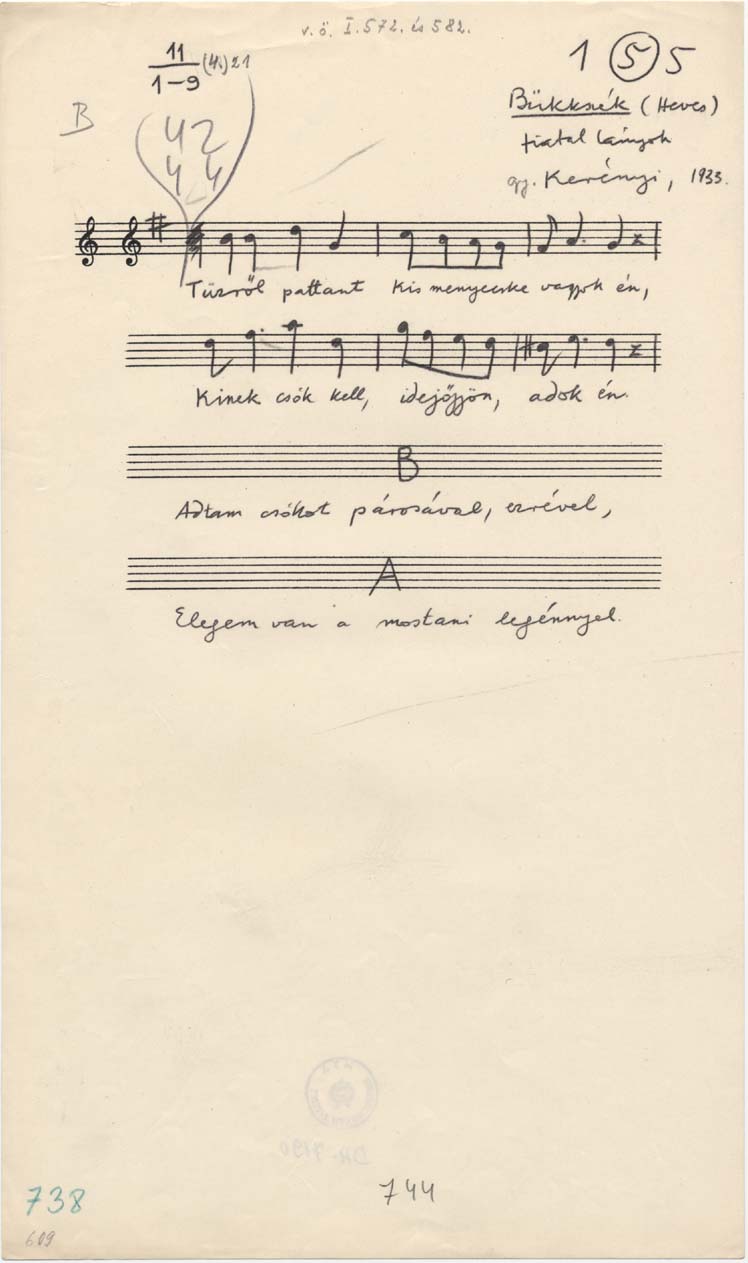 v. ö. I. 572. és 582.
11
1-9 (4.) 21
1 5 5
B
42
44
Bükkszék (Heves)
fiatal lányok
gy. Kerényi, 1933.
Tűzről pattant kis menyecske vagyok én,
Kinek csók kell, idejőjjön, adok én.
B
Adtam csókot párosával, ezrével,
A
Elegem van a mostani legénnyel.
738
744
609